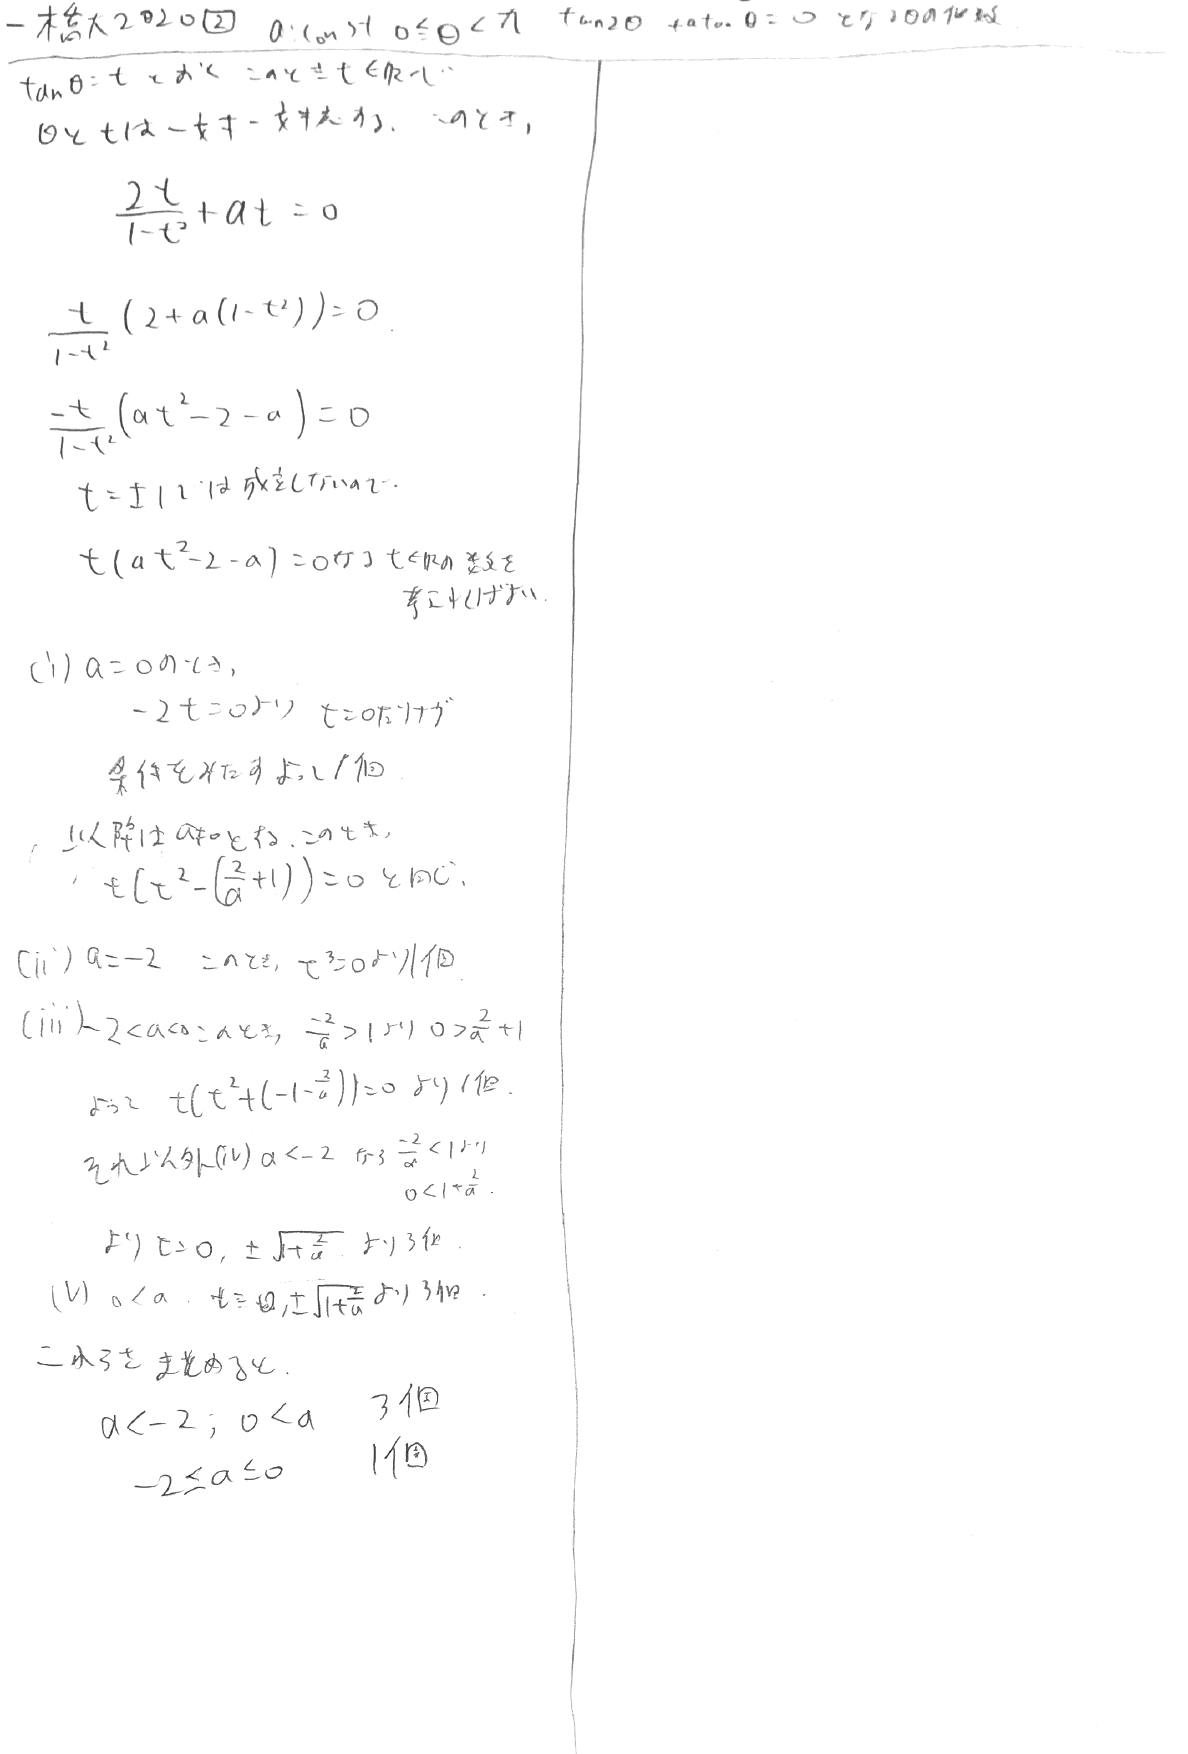 一橋大2020 2 a:const 0≦θ<π tan2θ+atanθ=0 となるθの個数
tanθ=t とおく このとき t∈ℝで
θとtは一対一対応する. このとき,
2t/(1-t²)+at=0
t/(1-t²)(2+a(1-t²))=0
-t/(1-t²)(at²-2-a)=0
t=±1では成立しないので.
t(at²-2-a)=0なるt∈ℝの数を
考えればよい.
(i) a=0のとき,
-2t=0より t=0だけが
条件をみたす よって1個
以降はa≠0とする.このとき,
t(t²-(2/a+1))=0 と同じ.
(ii) a=-2 このとき, t³=0より1個
(iii) -2<a<0このとき, -2/a>1より 0>2/a+1
よって t(t²+(-1-2/a))=0 より1個.
それ以外(iv) a<-2 なら -2/a<1より
0<1+2/a.
より t=0, ±√(1+2/a) より3個.
(V) 0<a. t=0,±√(1+2/a) より3個.
これらをまとめると.
a<-2; 0<a 3個
-2≦a≦0 1個